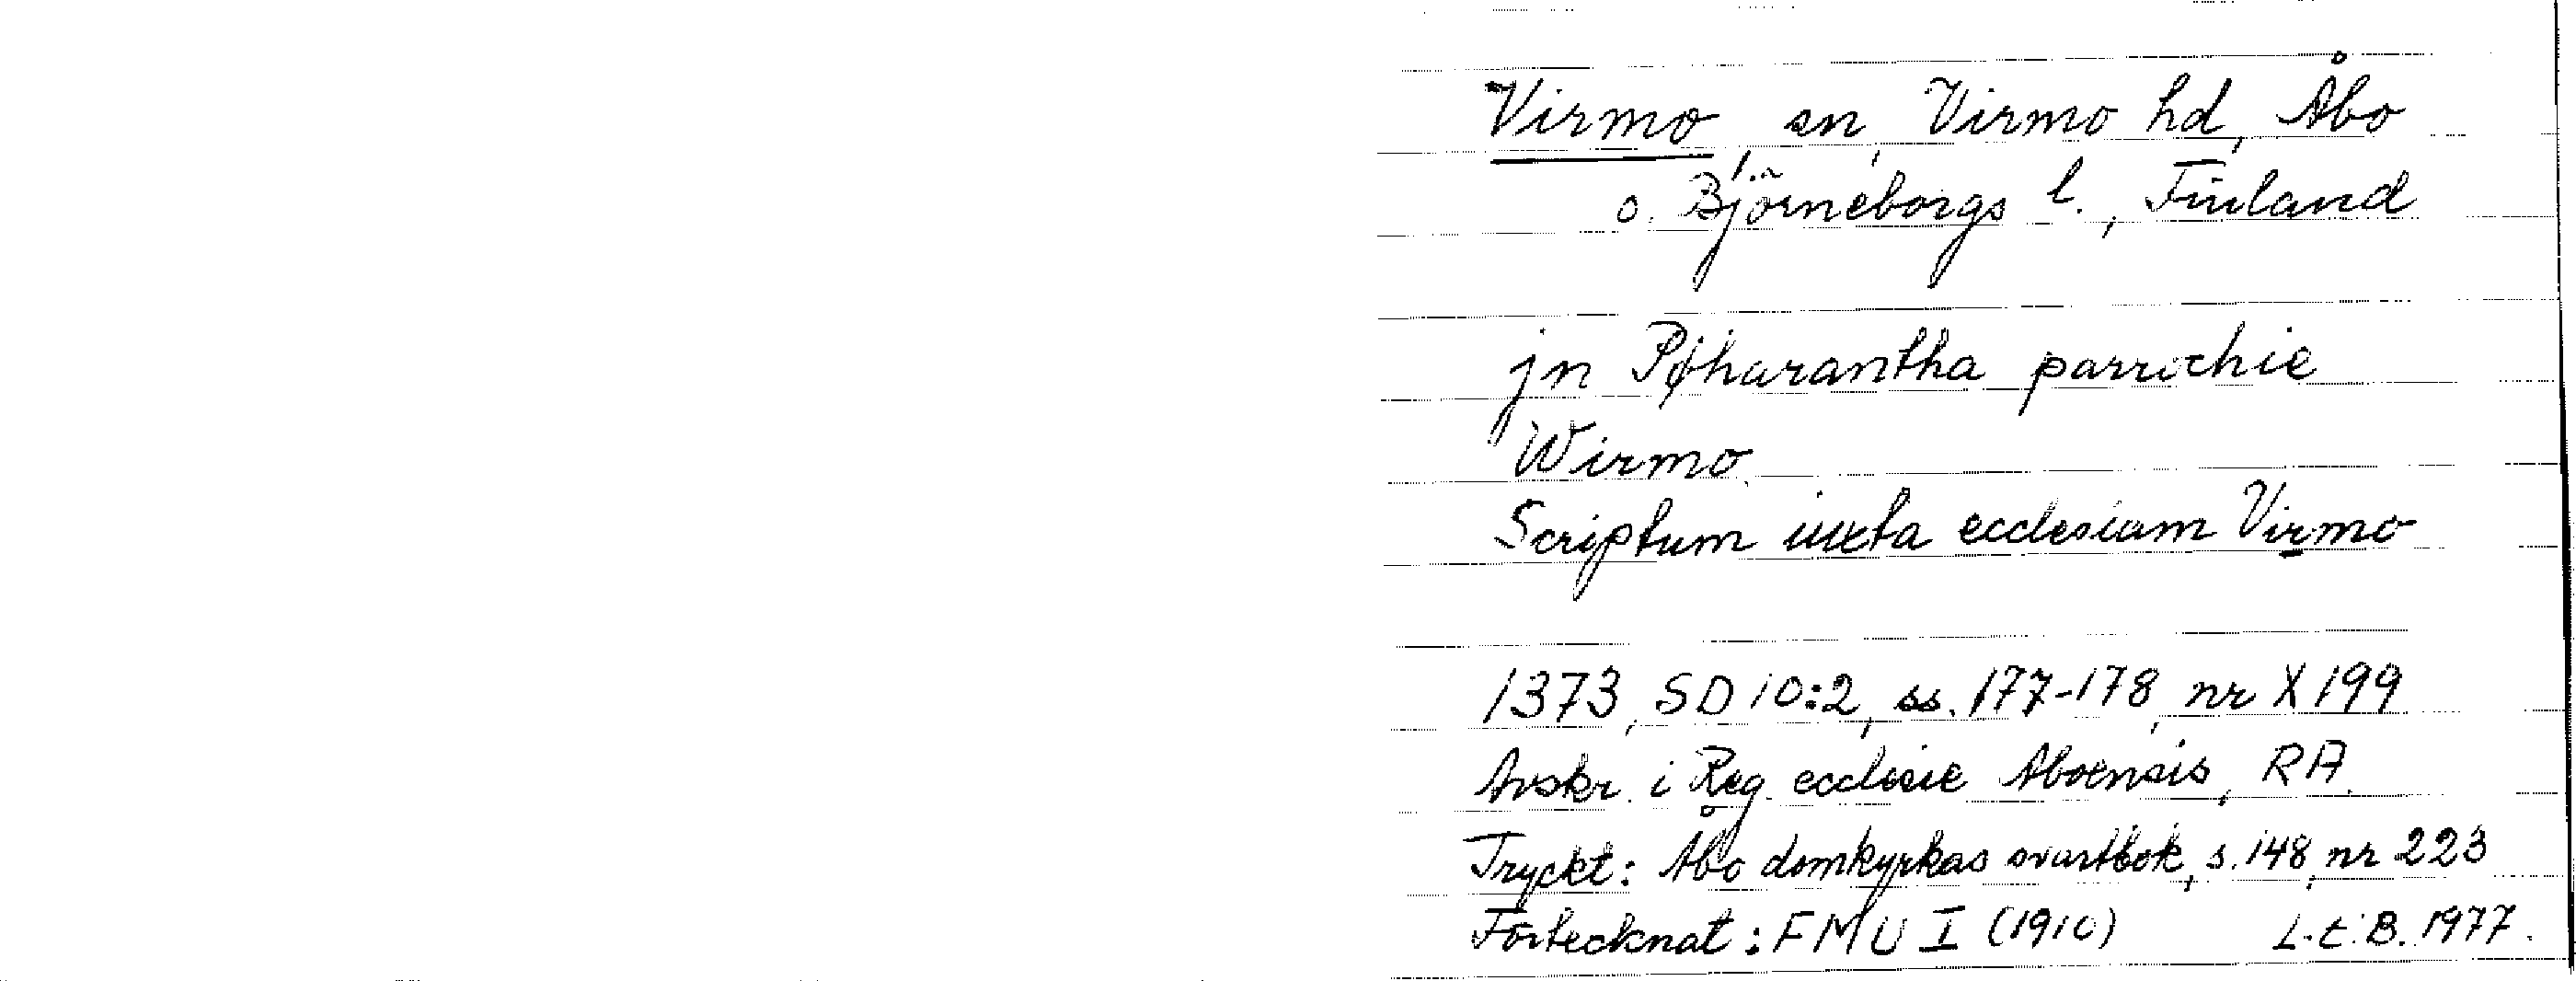 Virmo sn, Virmo hd, Åbo
o. Björneborgs l., Finland
jn Pøharantha parrochie
Wirmo
Scriptum iuxta ecclesiam Virmo
1373, SD 10:2, ss. 177-178, nr X 199
Avskr. i Reg. ecclesie Aboensis, RA.
Tryckt: Åbo domkyrkas svartbok, s. 148, nr 223
Förtecknat: FMU I (1910) L.E.B. 1977.